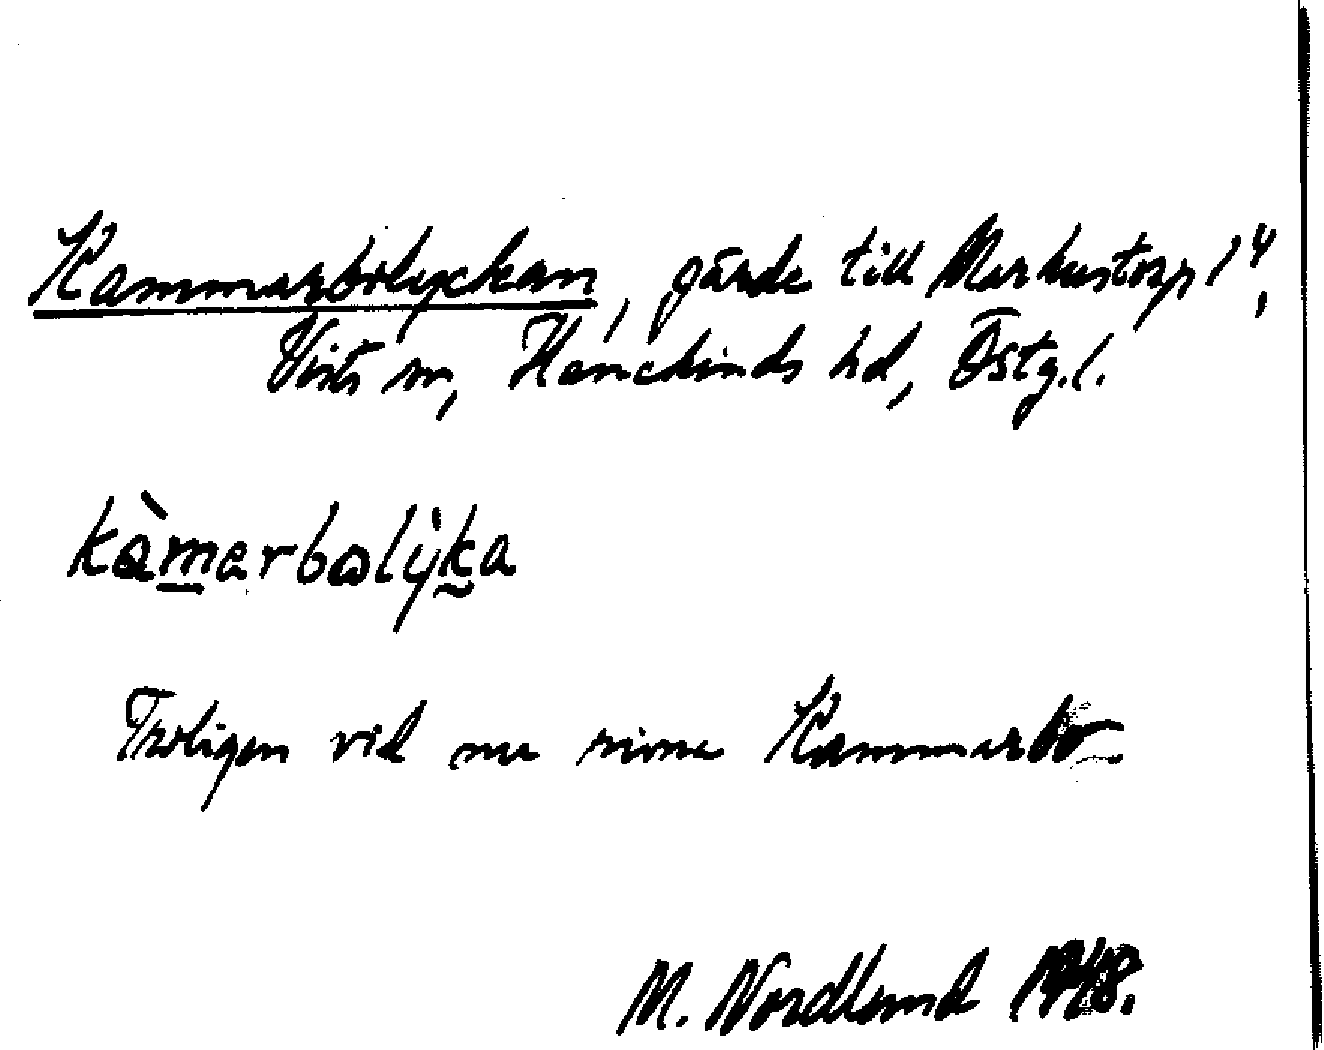 Kammarbolyckan, gärde till Markustorp 1⁴,
Vists sn, Hanekinds hd, Östg.l.
kàmarbωlỳka
Troligen vid nu rivna Kammarbo
M. Nordlund 1948.